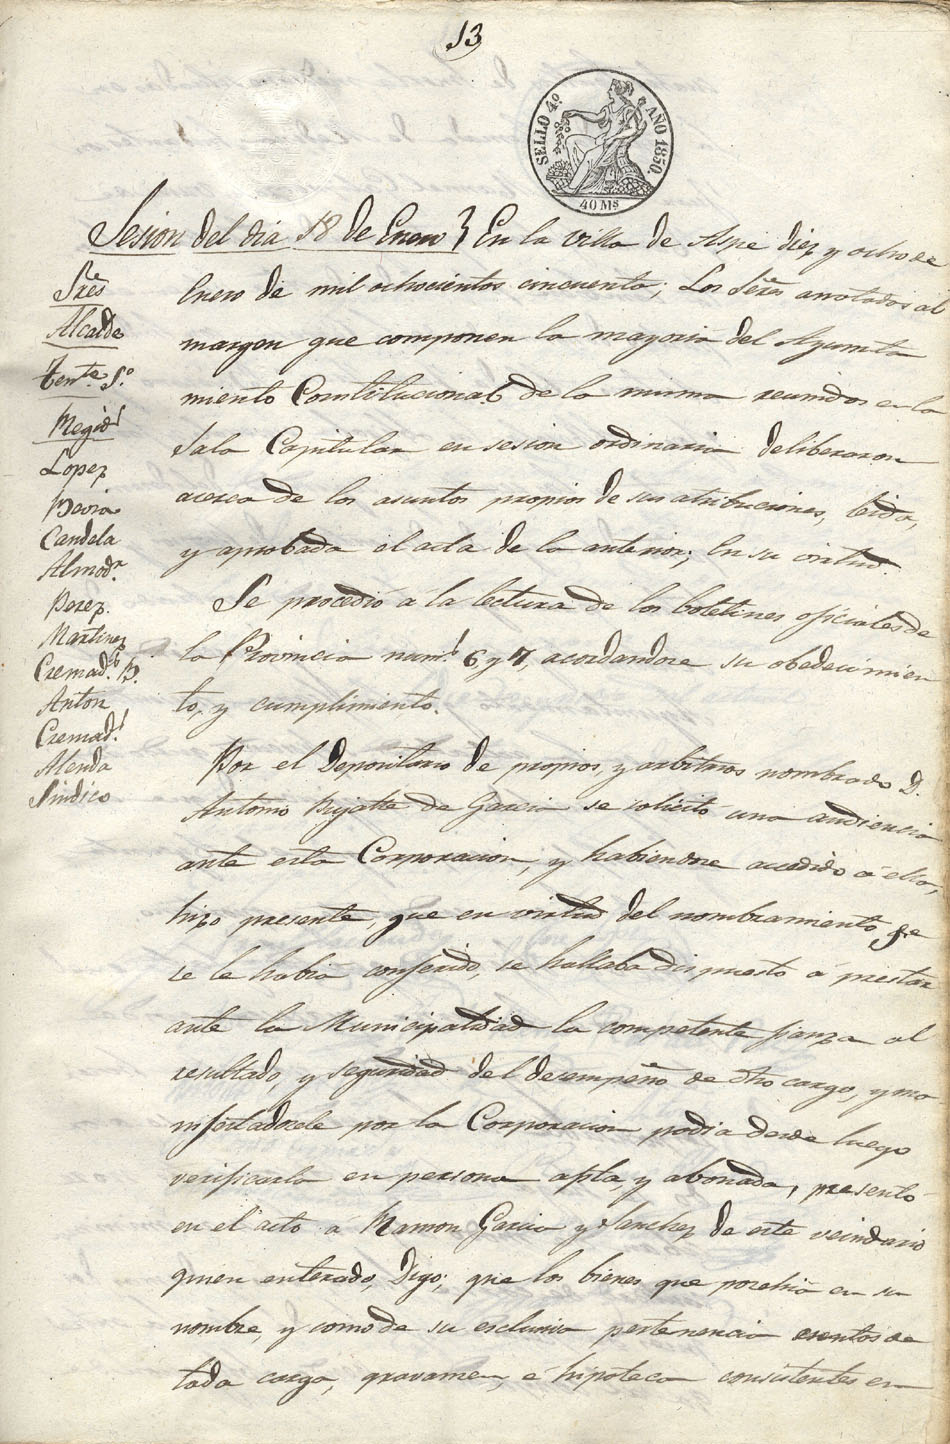 13
SELLO 4.º AÑO 1850.
40 Ms
Sesion del dia 18 de Enero } En la villa de Aspe diez y ocho de
Enero de mil ochocientos cincuenta; Los Señs. anotados al
margen que componen la mayoria del Ayunta
miento Constitucional de la misma reunidos en la
Sala Capitular en sesion ordinaria deliberaron
acerca de los asuntos propios de sus atribuciones, leida,
y aprobada el acta de la anterior; En su virtud.
Se procedió a la lectura de los boletines oficiales de
la Provincia num.s 6 y 7, acordandose su obedecimien
to, y cumplimiento.
Por el Depositario de propios, y arbitrios nombrado D.
Antonio Pujalte de Garcia se solicitó una audiencia
ante esta Corporacion, y habiendose accedido á ello,
hizo presente, que en virtud del nombramiento, q.e
se le habia conferido, se hallaba dispuesto á prestar
ante la Municipalidad la competente fianza al
resultado, y seguridad del desempeño de dho cargo, y ma
nifestadosele por la Corporacion podia desde luego
verificarla en persona apta, y abonada, presentó
en el acto á Ramon Garcia y Sanchez de este veindario
quien enterado, Digo; que los bienes que posehia en su
nombre, y como de su esclusiva pertenencia esentos de
toda carga, gravamen, é hipoteca consistentes en
Sres
Alcalde
Tente. S.º
Regid.s
Lopez
Candela
Almod.r
Perez.
Martinez
Cremad.s B.
Anton
Cremad.s
Alenda
Sindico